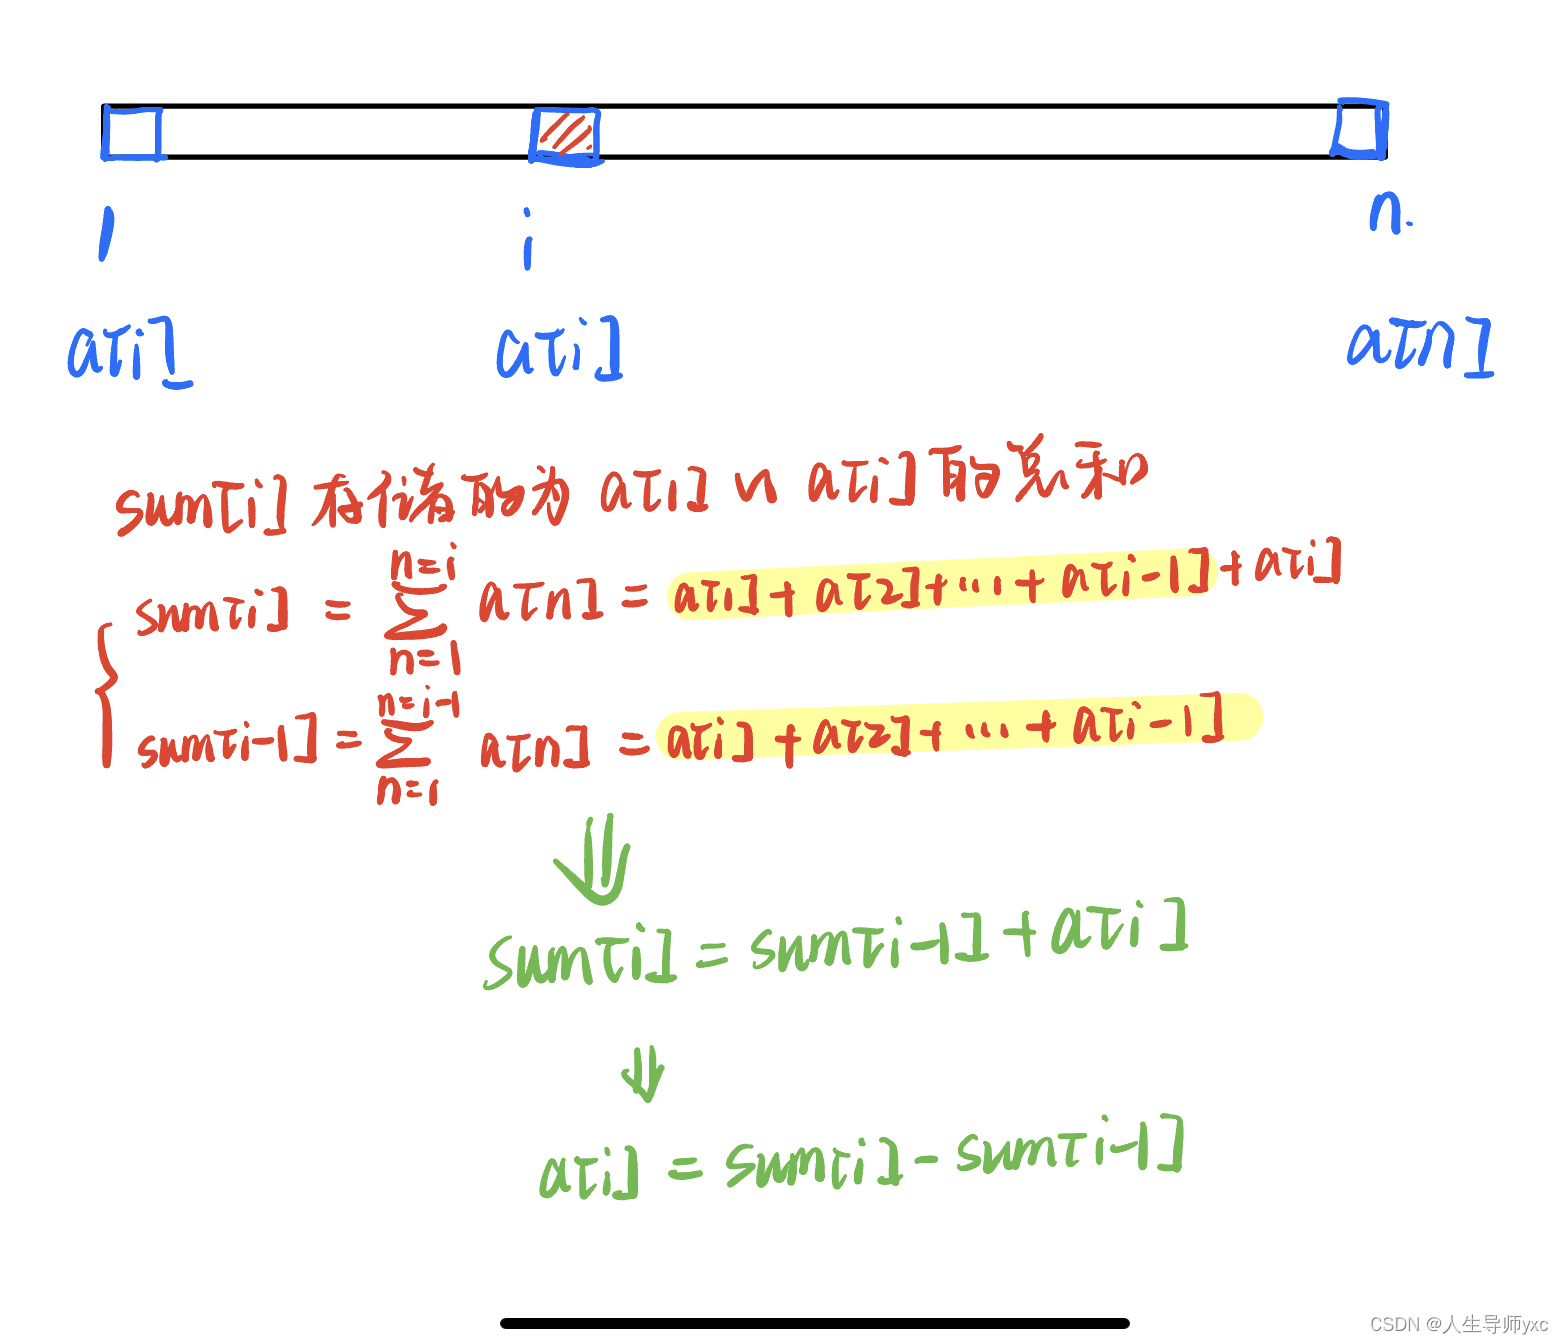 1 i n.
a[i] a[i] a[n]
sum[i] 存储的为 a[1] ~ a[i] 的总和
sum[i] = n=i ∑ n=1 a[n] = a[1] + a[2] + ... + a[i-1] + a[i]
sum[i-1] = n=i-1 ∑ n=1 a[n] = a[i] + a[2] + ... + a[i-1]
⇓
sum[i] = sum[i-1] + a[i]
⇓
a[i] = sum[i] - sum[i-1]
CSDN @人生导师yxc